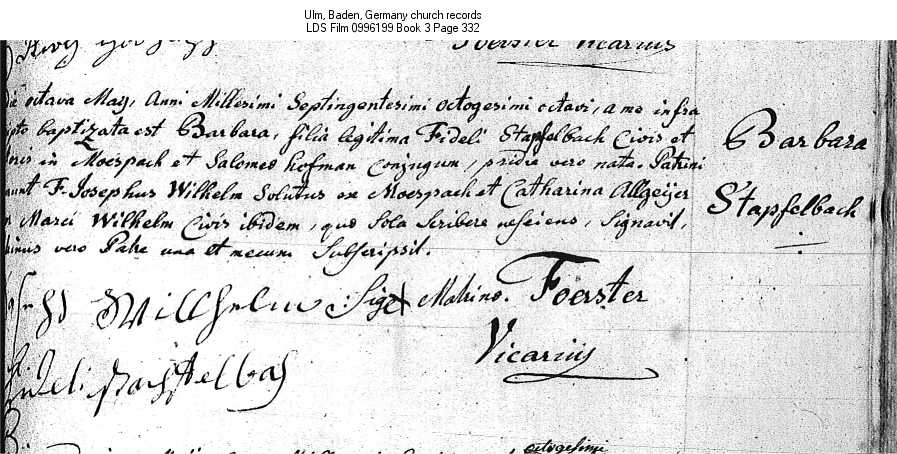 Ulm, Baden, Germany church records
LDS Film 0996199 Book 3 Page 332
Foerster Vicarius
die octava May, Anni Millesimi Septingentesimi octogesimi octavi, a me infra
pto baptizata est Barbara, filia legitima Fideli Stapfelbach Civis et
in Moespach et Salomea hofman Conjugum, pridie vero nata. Patrini
runt F. Josephus Wilhelm Solutus ex Moespach et Catharina Allgeijer
Marci Wilhelm Civis ibidem, quo Sola Scribere nesciens, Signavit,
rinus vero Patre una et mecum Subscripsit.
Barbara
Stapfelbach
Wilhelm Sig Matrino. Foerster
Vicarius
octogesimi